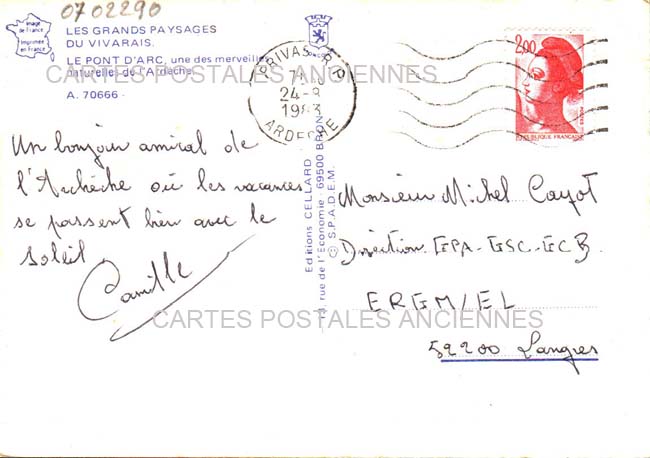 0702290
Image
de France
Imprimée
en France
LES GRANDS PAYSAGES
DU VIVARAIS.
LE PONT D'ARC, une des merveilles
naturelles de l'Ardèche.
A. 70666
CARTES POSTALES ANCIENNES
PRIVAS R.P.
24-8
1983
ARDECHE
2,00
POSTES
REPUBLIQUE FRANÇAISE
Un bonjour amical de
l'Ardèche où les vacances
se passent bien avec le
soleil.
Camille
Editions CELLARD
rue de l'Economie - 69500 BRON
© S.P.A.D.E.M.
Monsieur Michel Cayot
Direction GPA-GSC-GCB
ERGM/EL
52200 Langres
CARTES POSTALES ANCIENNES